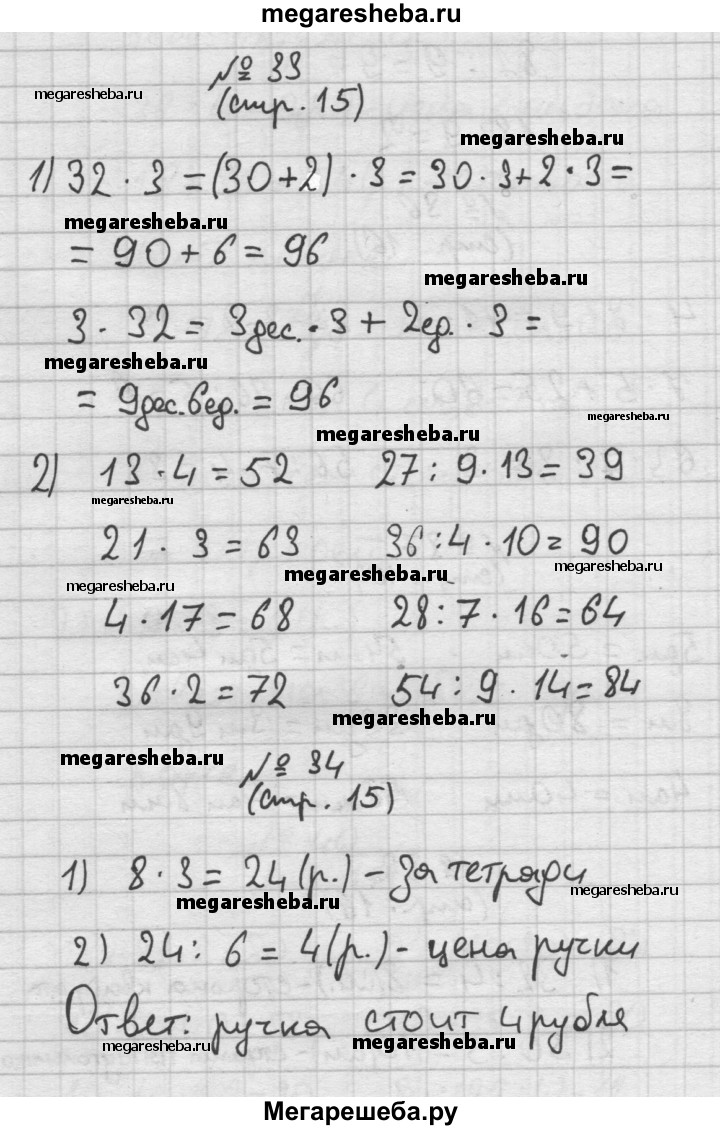 megaresheba.ru
№ 33
megaresheba.ru (стр. 15)
megaresheba.ru
1) 32 · 3 = (30+2) · 3 = 30 · 3 + 2 · 3 =
megaresheba.ru
= 90 + 6 = 96
megaresheba.ru
3 · 32 = 3дес. · 3 + 2ед. · 3 =
megaresheba.ru
= 9дес. 6ед. = 96
megaresheba.ru
megaresheba.ru
2) 13 · 4 = 52 27 : 9 · 13 = 39
megaresheba.ru
21 · 3 = 63 36 : 4 · 10 = 90
megaresheba.ru megaresheba.ru
megaresheba.ru
4 · 17 = 68 28 : 7 · 16 = 64
36 · 2 = 72 54 : 9 · 14 = 84
megaresheba.ru
megaresheba.ru
№ 34
(стр. 15)
1) 8 · 3 = 24 (р.) - за тетради
megaresheba.ru megaresheba.ru
2) 24 : 6 = 4 (р.) - цена ручки
Ответ: ручка стоит 4 рубля
megaresheba.ru megaresheba.ru
Мегарешеба.ру